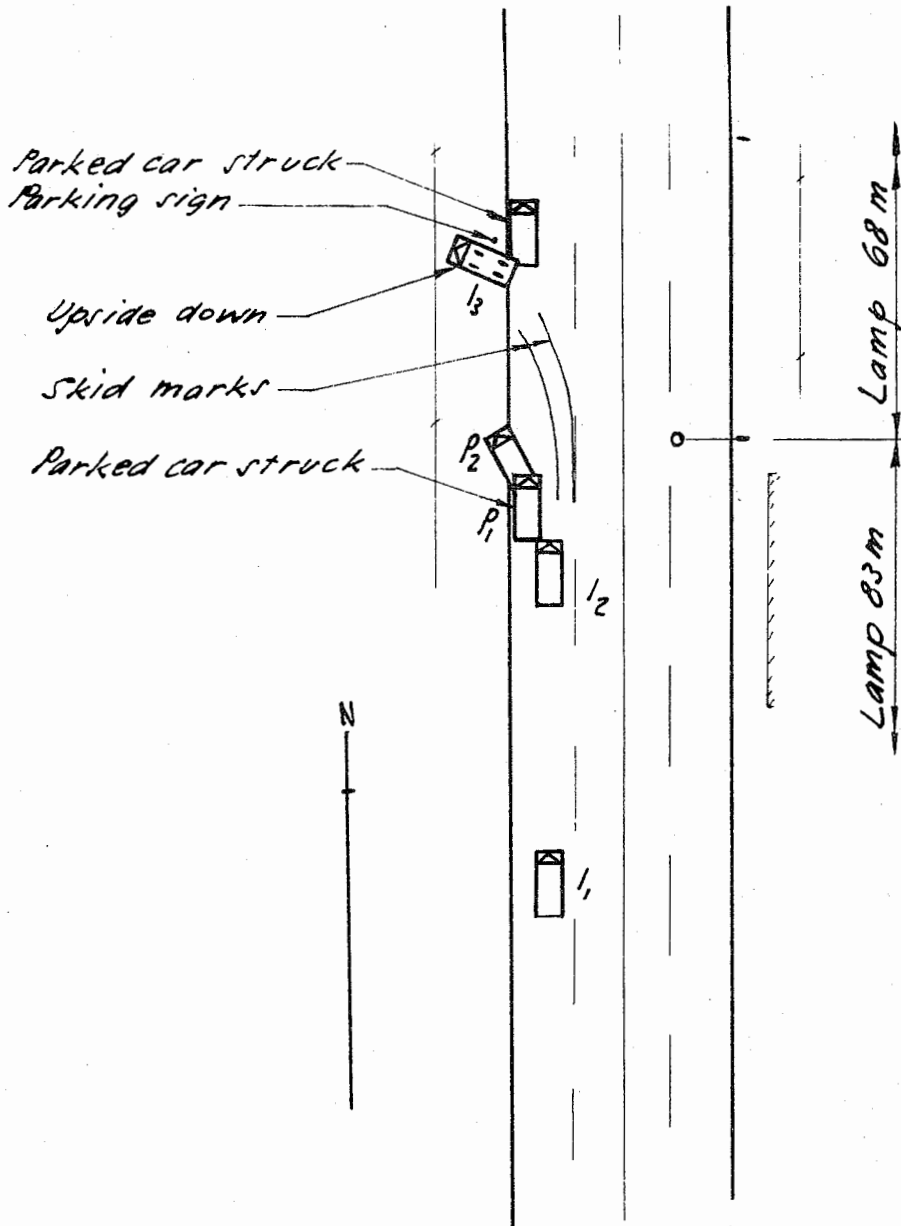 Parked car struck
Parking sign
1₃
Upside down
Skid marks
P₂
Parked car struck
P₁
1₂
N
1₁
Lamp 68 m
Lamp 83 m